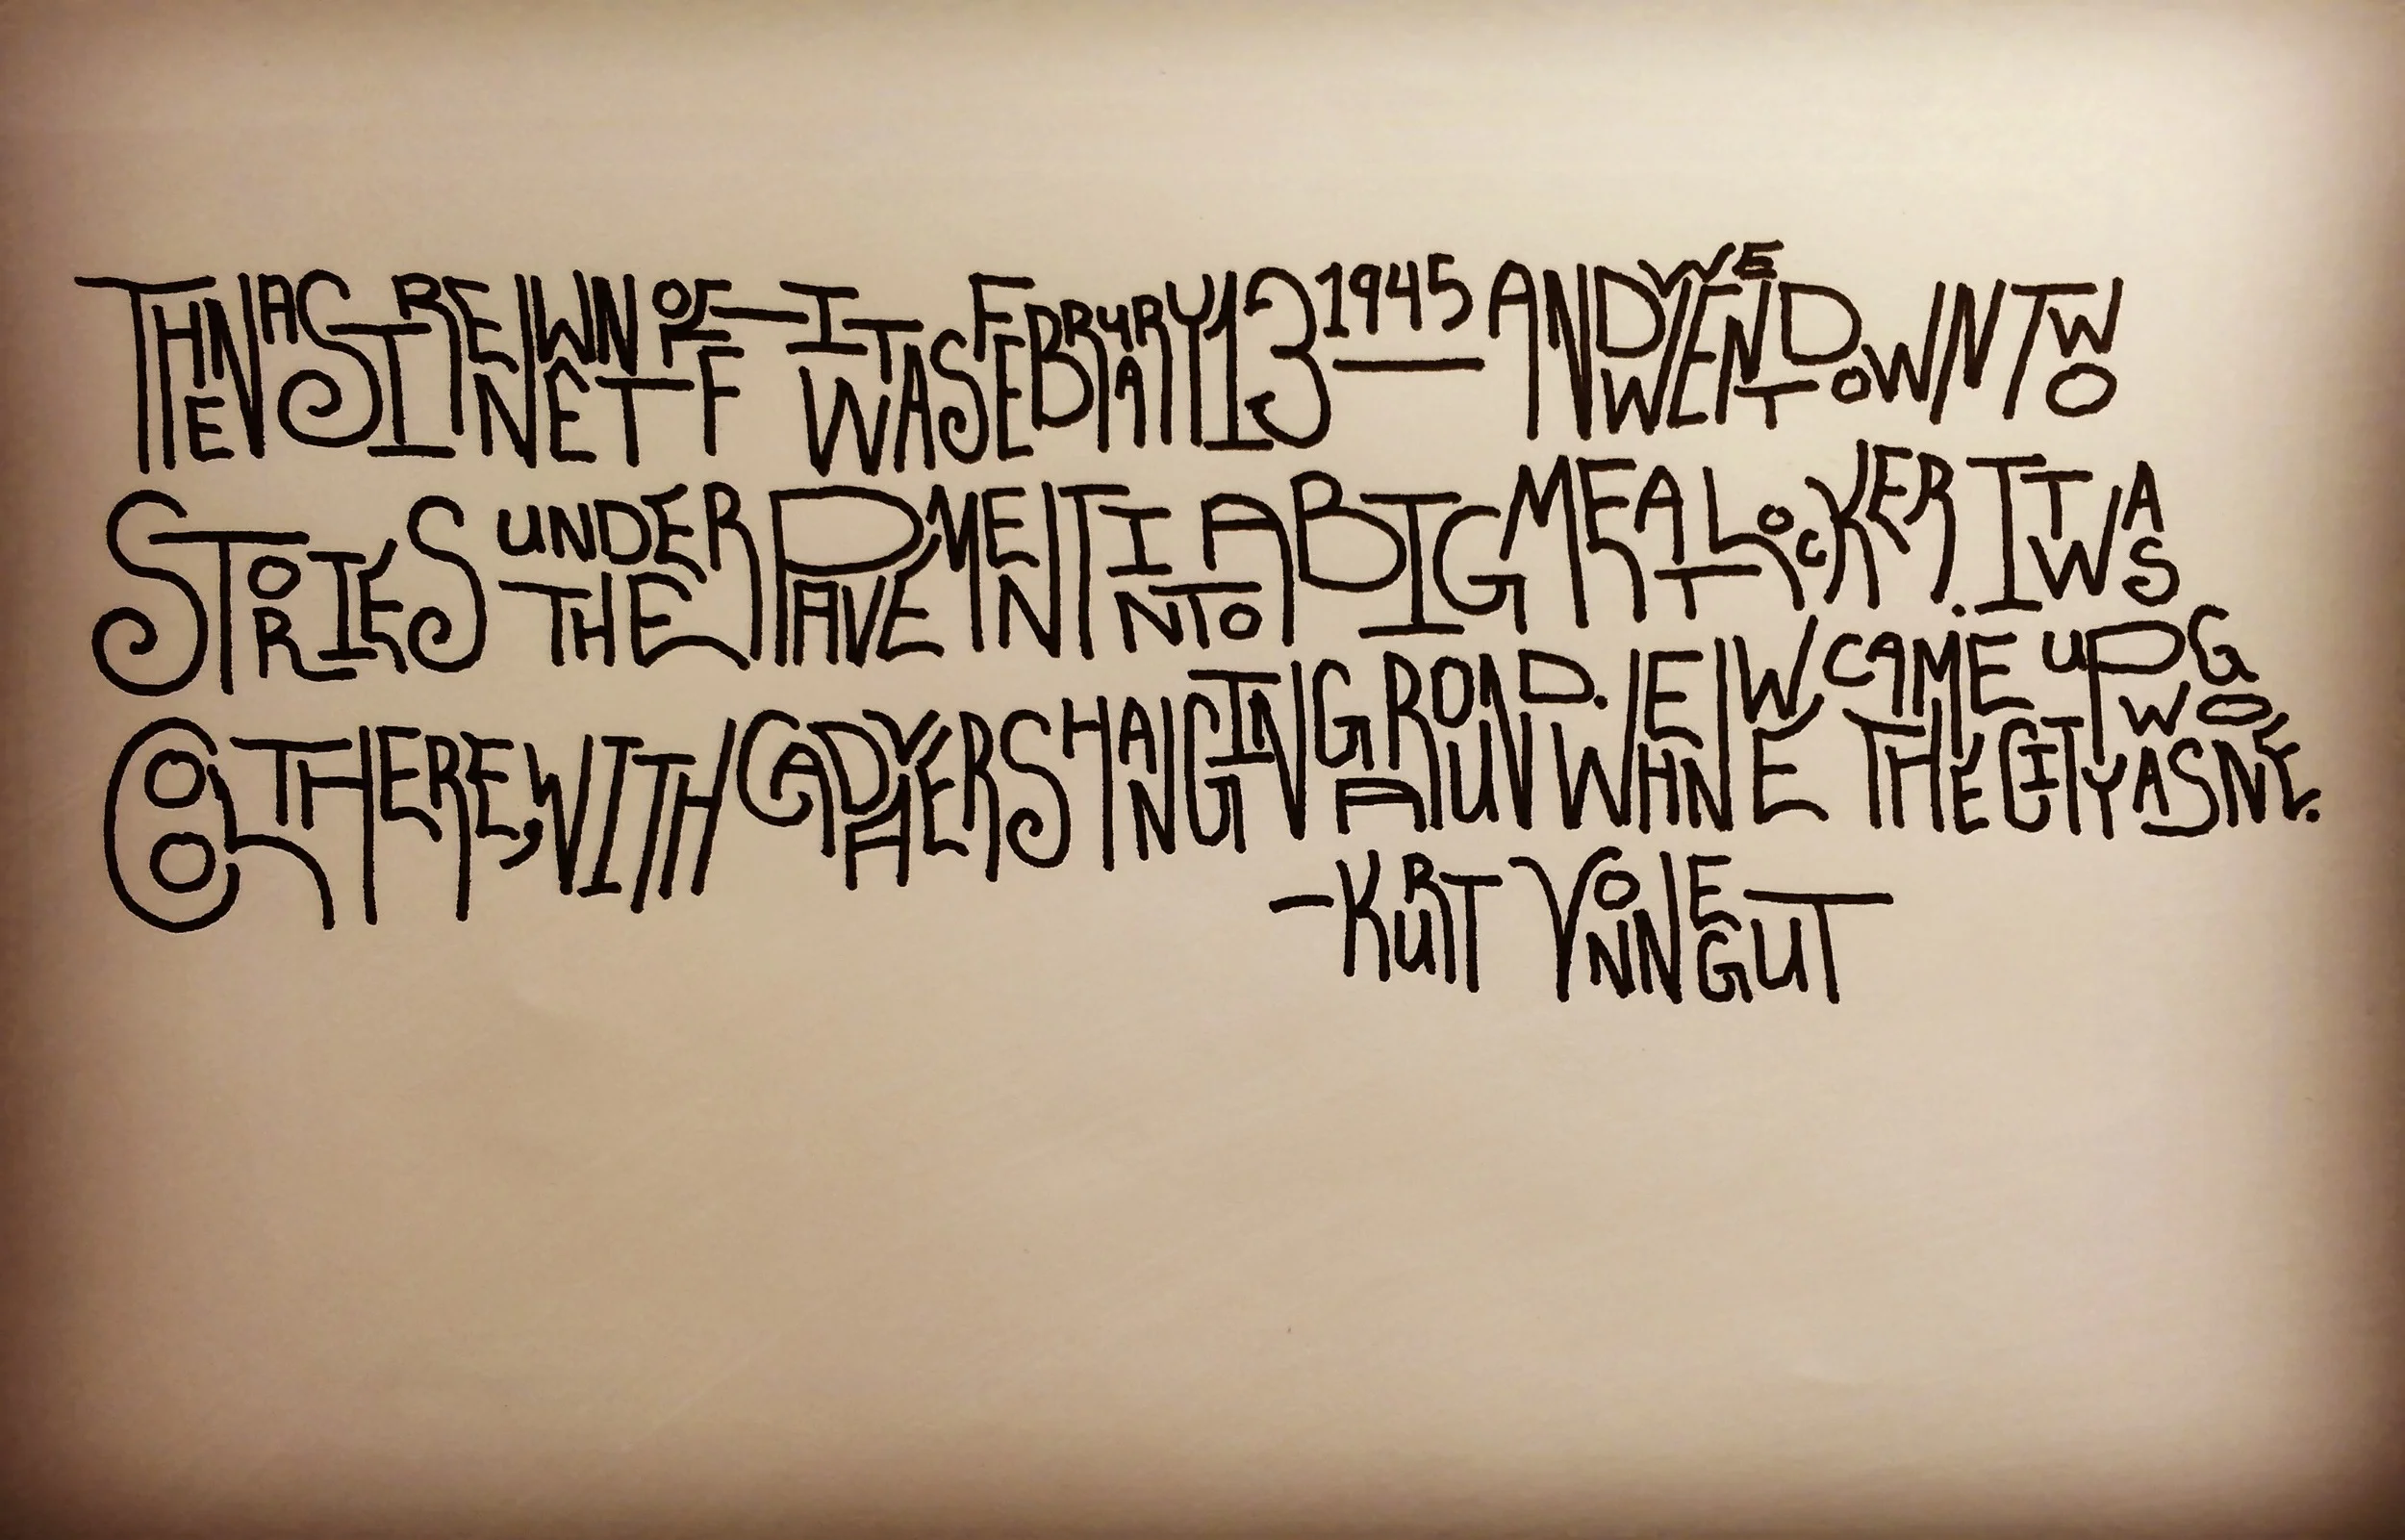 THEN A SIREN WENT OFF — IT WAS FEBRUARY 13 1945 — AND WE WENT DOWN TWO
STORIES UNDER THE PAVEMENT INTO A BIG MEAT LOCKER. IT WAS
COOL THERE, WITH CADAVERS HANGING AROUND. WHEN WE CAME UP THE CITY WAS GONE.
—KURT VONNEGUT